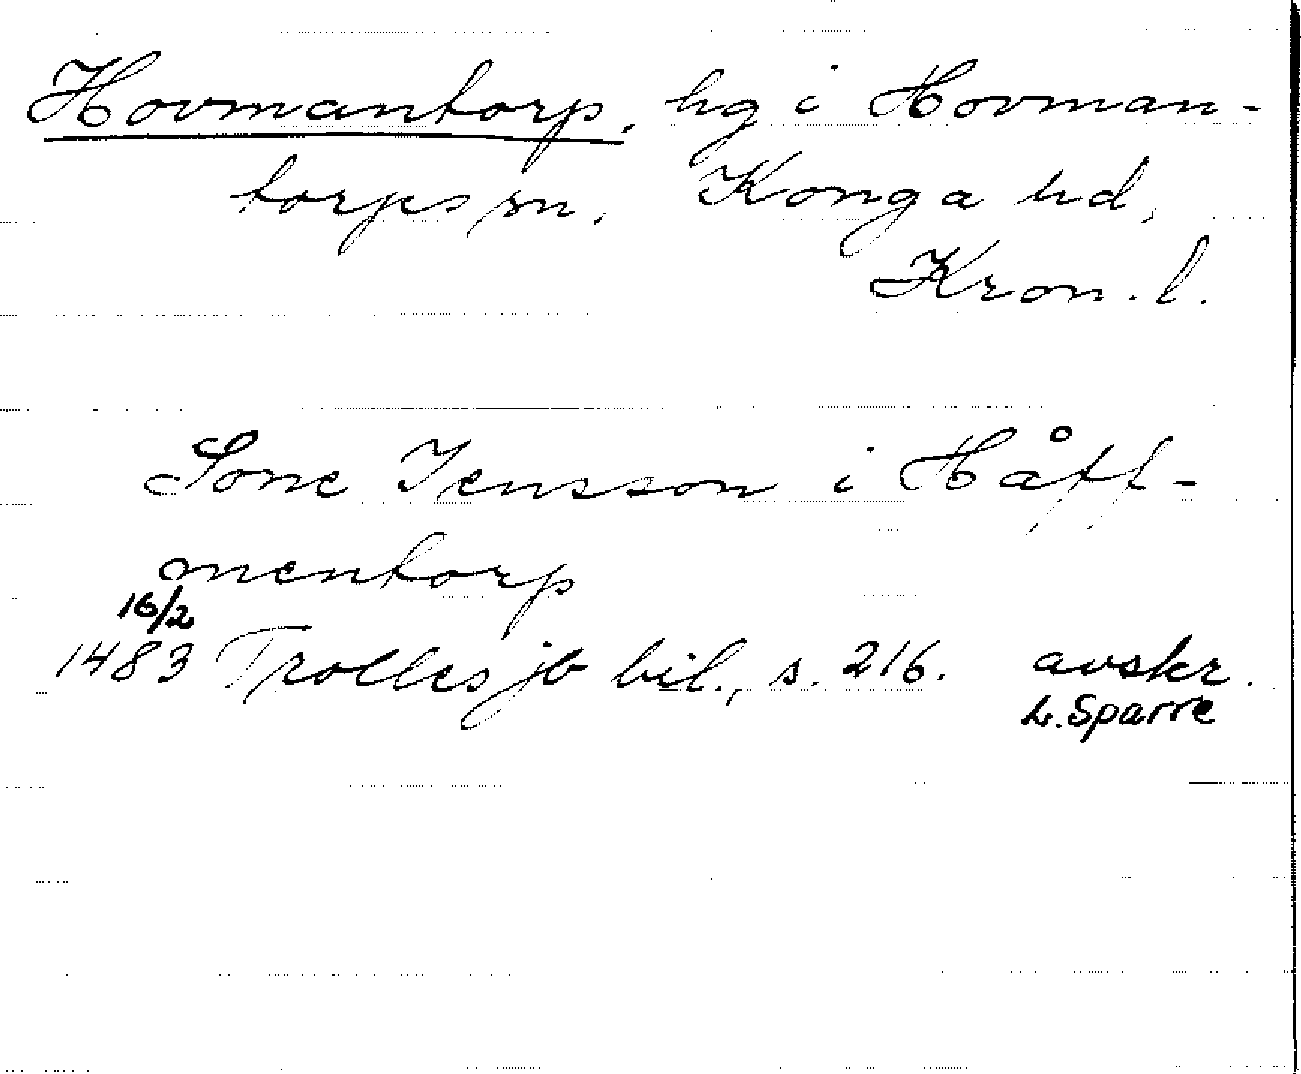 Hovmantorp, hg i Hovman-
torps sn, Konga hd,
Kron. l.
Sone Jensson i Håff-
mentorp
16/2
1483 Trolles jb bil., s. 216. avskr.
L. Sparre